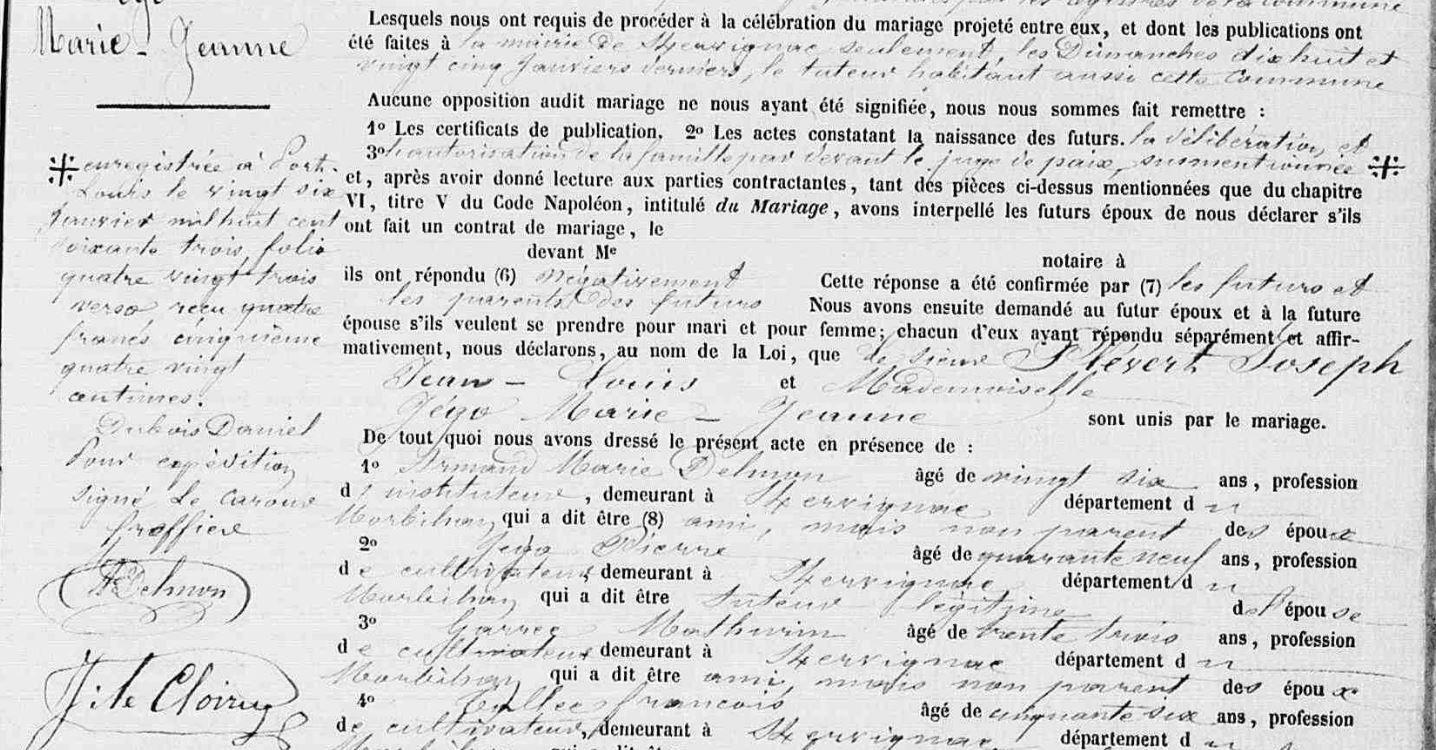 Marie - Jeanne
Lesquels nous ont requis de procéder à la célébration du mariage projeté entre eux, et dont les publications ont
été faites à la mairie de Kervignac seulement, les Dimanches dix huit et
vingt cinq Janviers derniers, le tuteur habitant aussi cette Commune
Aucune opposition audit mariage ne nous ayant été signifiée, nous nous sommes fait remettre :
1º Les certificats de publication. 2º Les actes constatant la naissance des futurs. la délibération et
3º l'autorisation de la famille par devant le juge de paix, susmentionnée ⁜
et, après avoir donné lecture aux parties contractantes, tant des pièces ci-dessus mentionnées que du chapitre
VI, titre V du Code Napoléon, intitulé du Mariage, avons interpellé les futurs époux de nous déclarer s'ils
ont fait un contrat de mariage, le
devant Me notaire à
ils ont répondu (6) négativement Cette réponse a été confirmée par (7) les futurs et
les parents des futurs Nous avons ensuite demandé au futur époux et à la future
épouse s'ils veulent se prendre pour mari et pour femme; chacun d'eux ayant répondu séparément et affir-
mativement, nous déclarons, au nom de la Loi, que le sieur Plevert Joseph
Jean - Louis et Mademoiselle
Jégo Marie - Jeanne sont unis par le mariage.
De tout quoi nous avons dressé le présent acte en présence de :
1º Armand Marie Delmon âgé de vingt six ans, profession
d'instituteur, demeurant à Kervignac département d u
Morbihan qui a dit être (8) ami, mais non parent des époux
2º Jégo Pierre âgé de quarante neuf ans, profession
de cultivateur, demeurant à Kervignac département d u
Morbihan qui a dit être tuteur légitime de l'épouse
3º Garrec Mathurin âgé de trente trois ans, profession
de cultivateur demeurant à Kervignac département d u
Morbihan qui a dit être ami, mais non parent des époux
4º françois âgé de cinquante six ans, profession
de cultivateur, demeurant à Kervignac département d u
⁜ enregistrée à Port-
Louis le vingt six
Janvier mil huit cent
soixante trois, folio
quatre vingt trois
verso reçu quatre
francs cinquième
quatre vingt
centimes.
Dubois Daniel
Pour expédition
signé Le
greffier
ADelmon